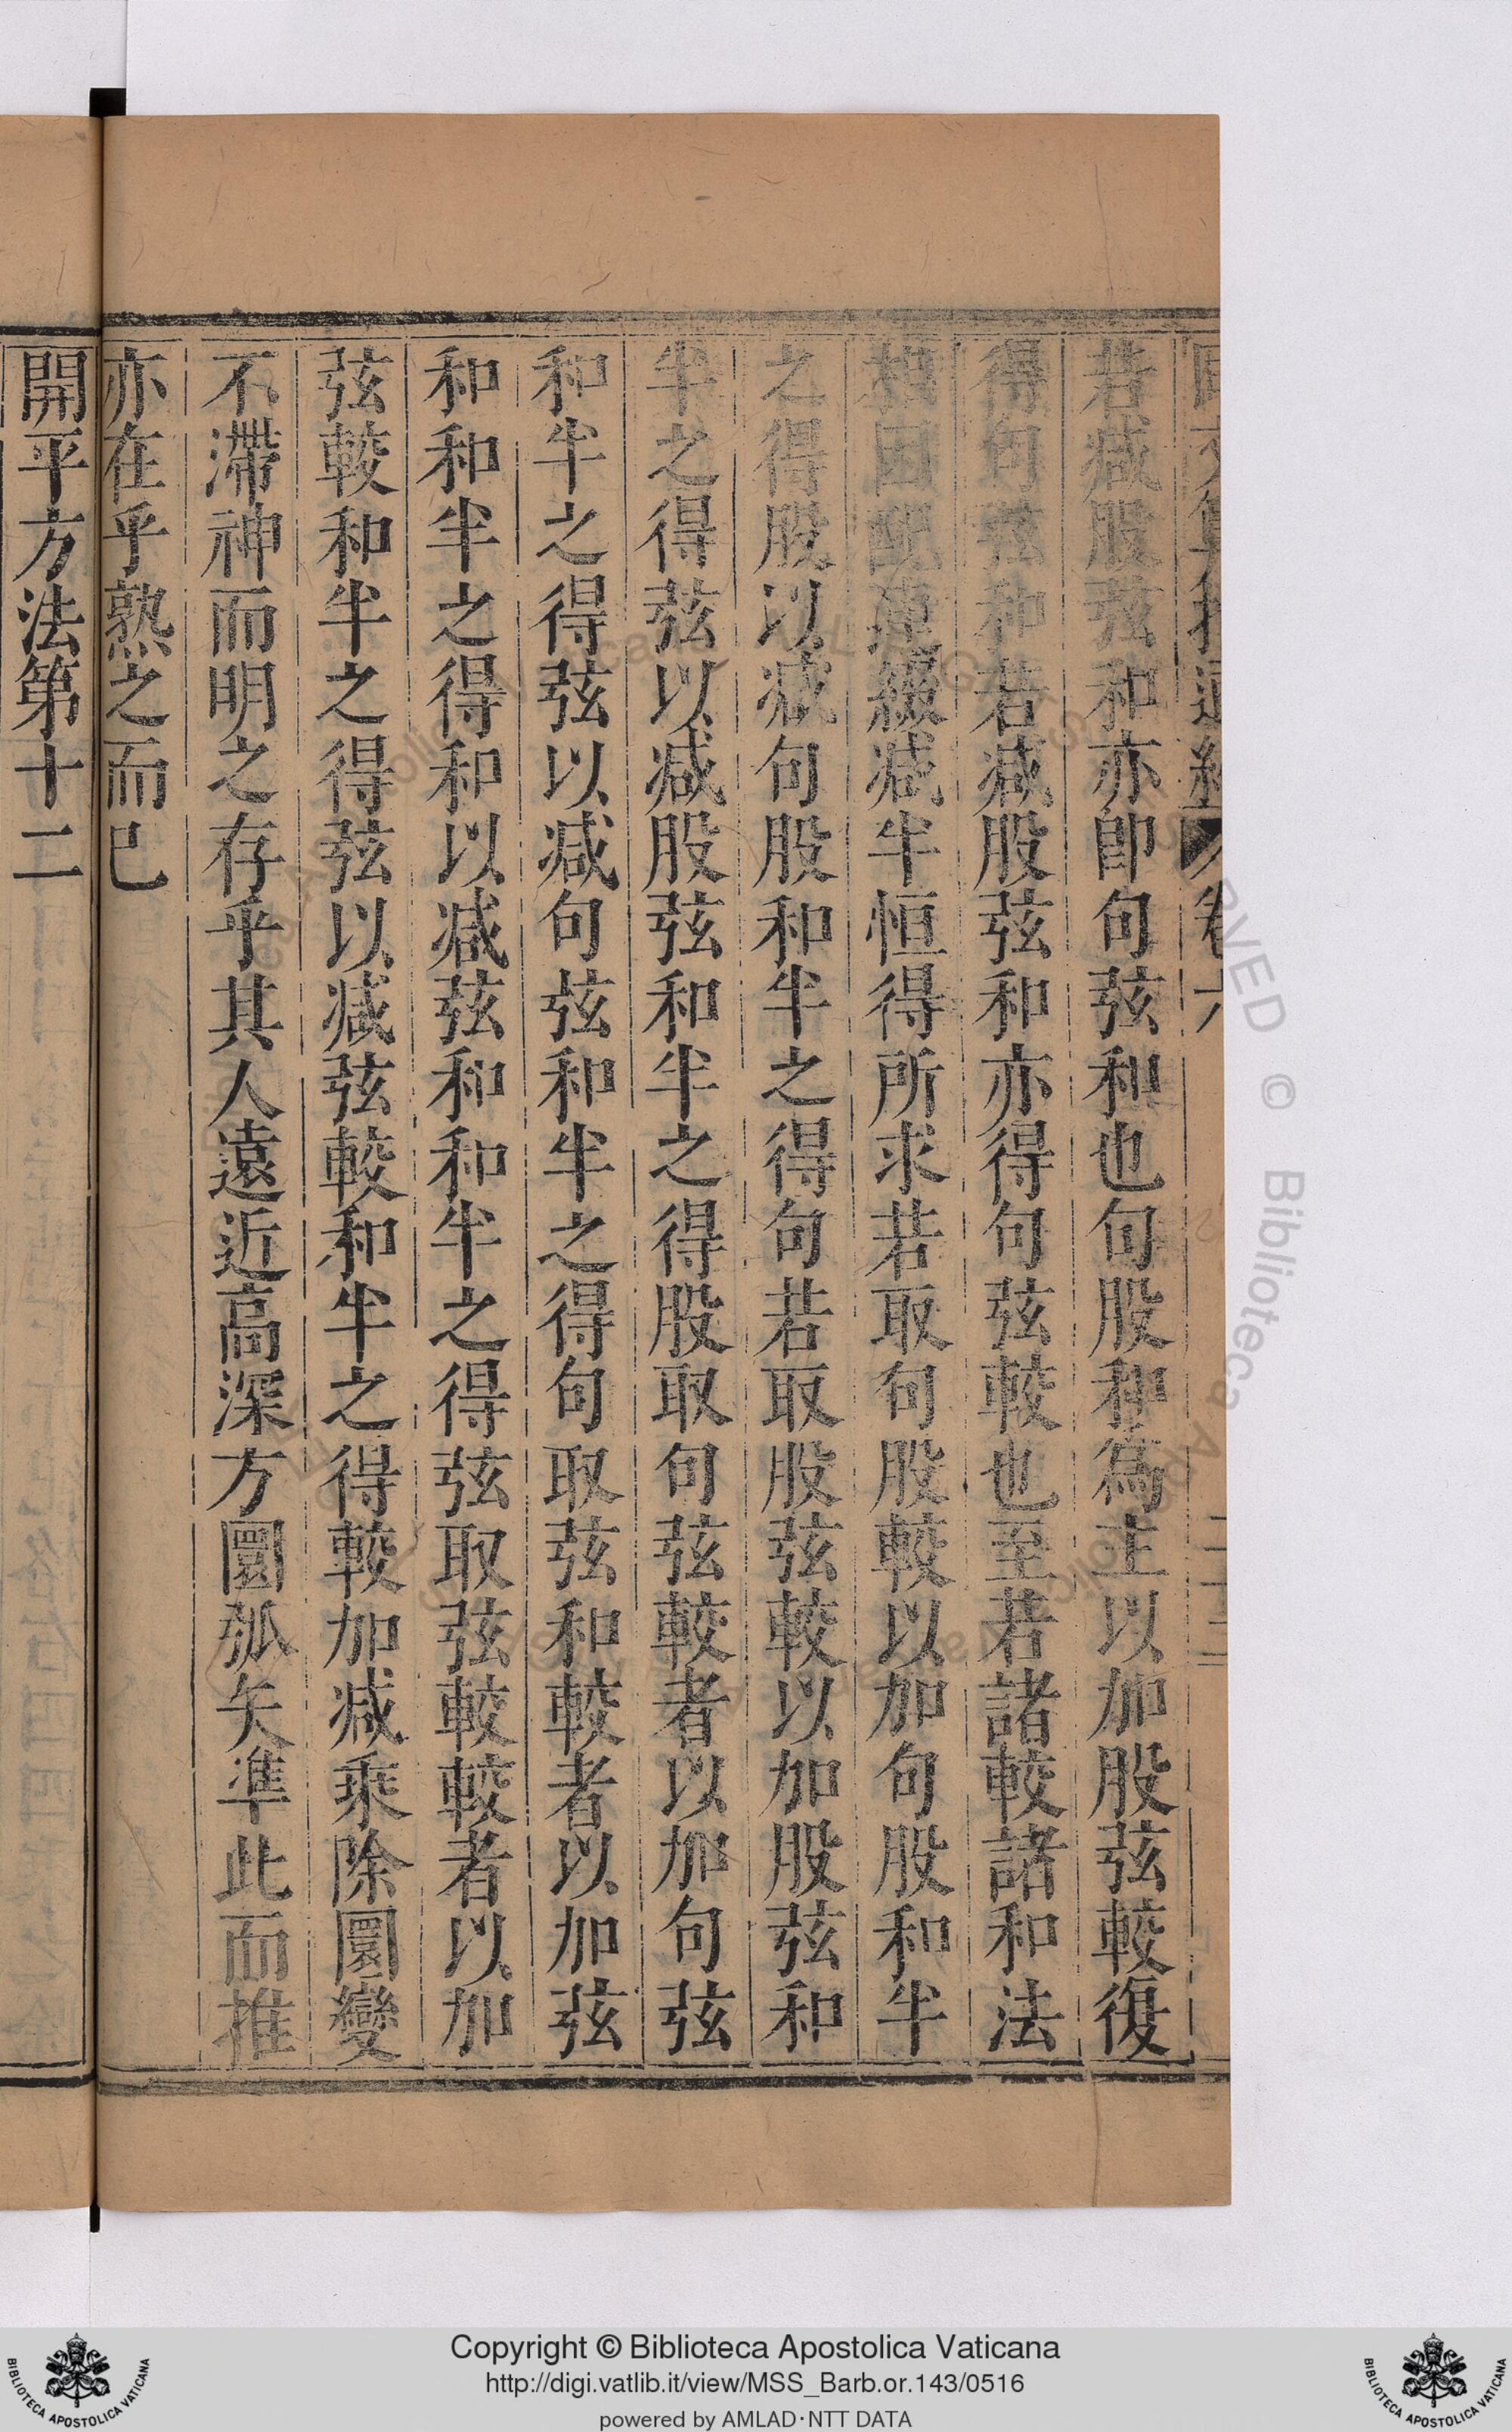 若减股弦和亦即句弦和也句股和為主以加股弦較復
得句弦和若减股弦和亦得句弦較也至若諸較諸和法
相因配連綴减半恒得所求若取句股較以加句股和半
之得股以减句股和半之得句若取股弦較以加股弦和
半之得弦以减股弦和半之得股取句弦較者以加句弦
和半之得弦以减句弦和半之得句取弦和較者以加弦
和和半之得和以减弦和和半之得弦取弦較較者以加
弦較和半之得弦以减弦較和半之得較加减乘除圜變
不滯神而明之存乎其人遠近高深方圜弧矢凖此而推
亦在乎熟之而已
開平方法第十二
Copyright © Biblioteca Apostolica Vaticana
http://digi.vatlib.it/view/MSS_Barb.or.143/0516
powered by AMLAD·NTT DATA
BIBLIOTECA APOSTOLICA VATICANA
BIBLIOTECA APOSTOLICA VATICANA